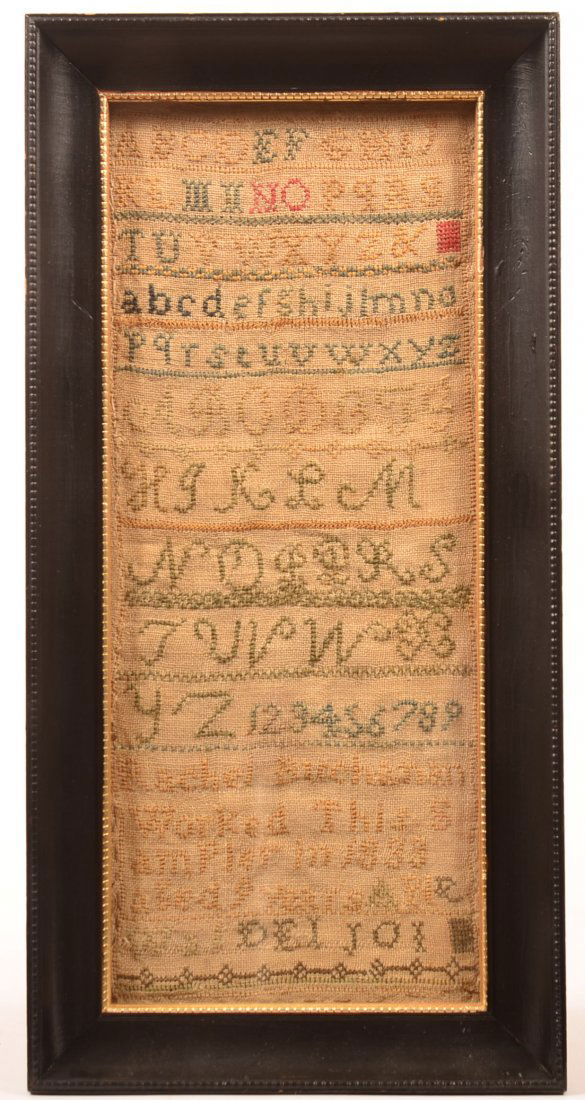 ABCD EF GHIJ
KL M I NO PQRS
TU VWXYZ&
abcdefghijlmno
pqrstuvwxyz
ABCDEFG
HIKLM
NOPQRS
TUVWX
YZ 123456789
Rachel Buchanan
Worked This S
ampler in 1833
Aged 9 Years
DEI JOI